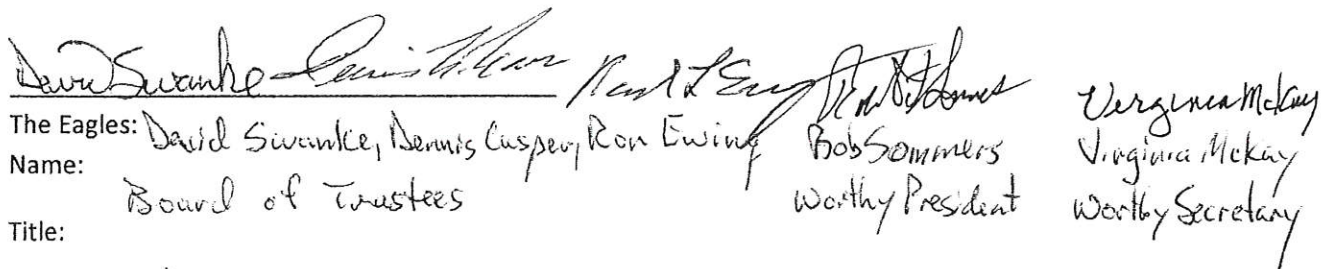 David Swanke
Virginia McKay
The Eagles: David Swanke, Dennis Casper, Ron Ewing Bob Sommers Virginia McKay
Name:
Board of Trustees Worthy President Worthy Secretary
Title: